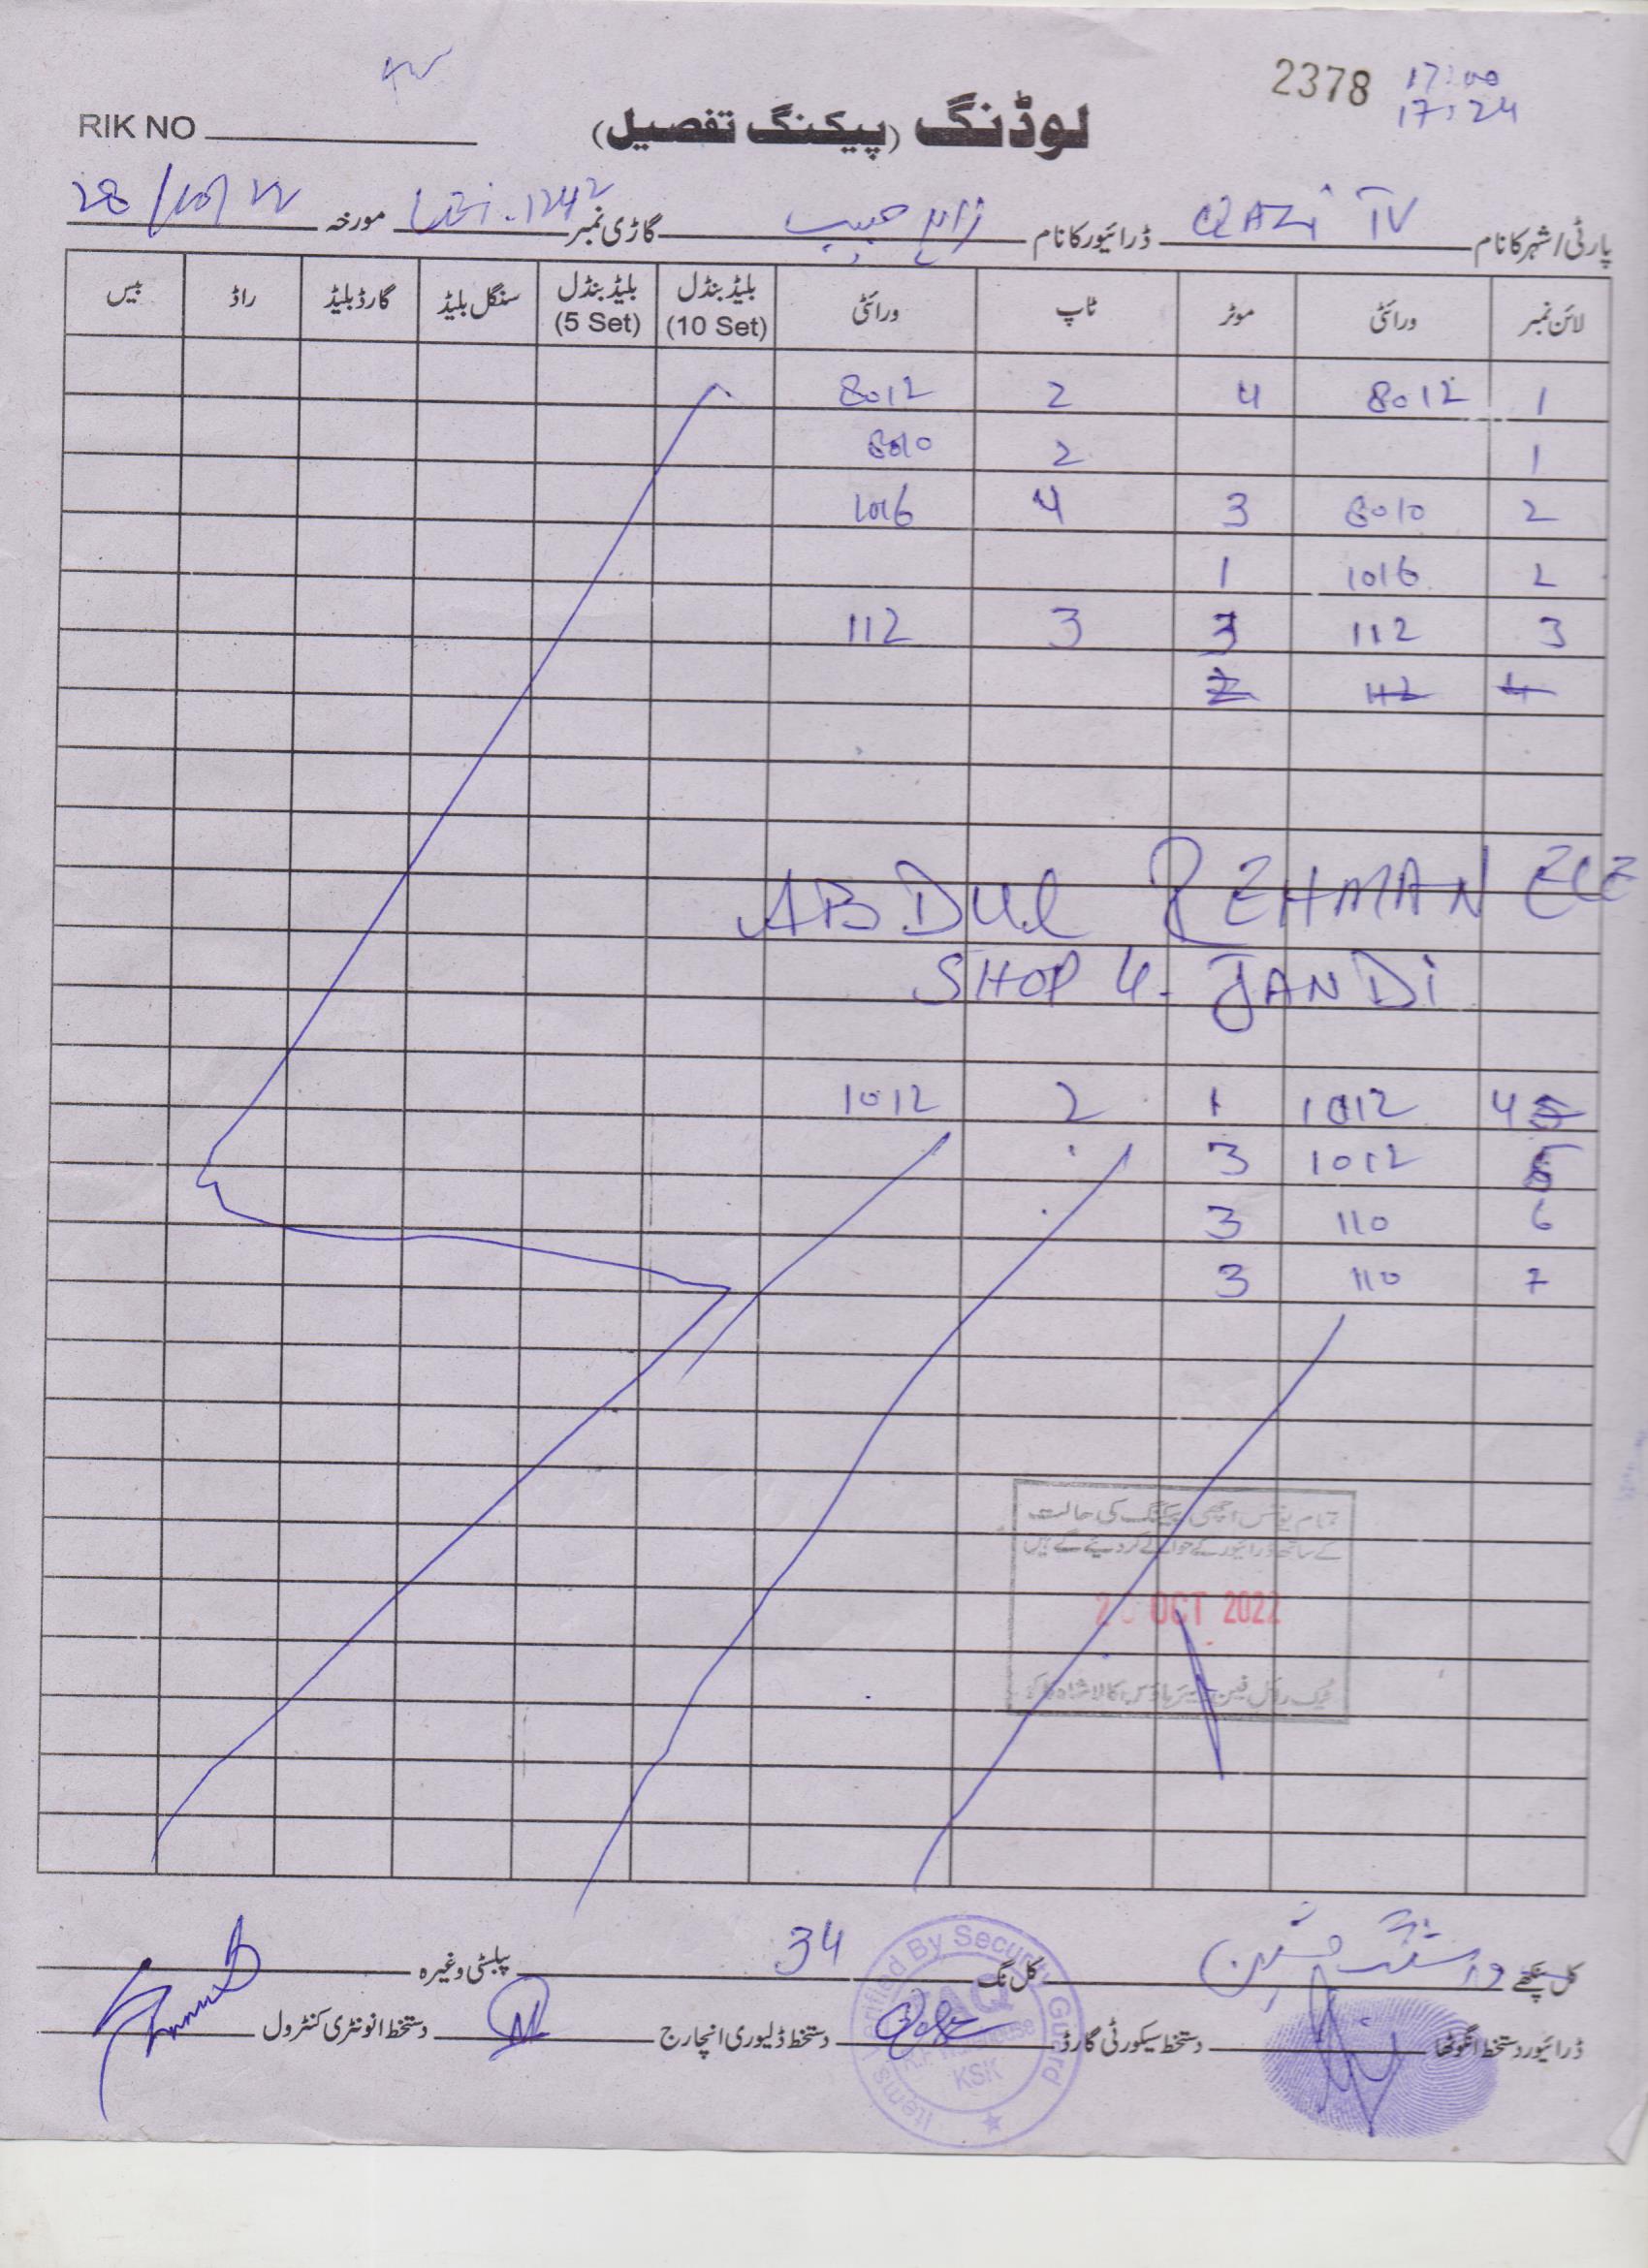 2378 17:00
17:24
RIK NO
لوڈنگ (پیکنگ تفصیل)
پارٹی/شہر کا نام QAZi TV ڈرائیور کا نام حبیب گاڑی نمبر 1242 مورخہ 28/10/22
لائن نمبر ورائٹی موٹر ٹاپ ورائٹی بلیڈ بنڈل (10 Set) بلیڈ بنڈل (5 Set) سنگل بلیڈ گارڈ بلیڈ راڈ بیس
1 8012 4 2 8012
1 2 8010
2 8010 3 4 1016
2 1016 1
3 112 3 3 112
4 112 2
ABDUL REHMAN ELE
SHOP 4- JANDi
4 5 1012 1 2 1012
5 1012 3
6 110 3
7 110 3
تمام یونٹس اچھی پیکنگ کی حالت
کے ساتھ ڈرائیور کے حوالے کر دیئے گئے ہیں
OCT 2022
کل پنکھے کل نگ 34 پبلٹی وغیرہ
ڈرائیور دستخط انگوٹھا دستخط سیکورٹی گارڈ دستخط ڈلیوری انچارج دستخط انونٹری کنٹرول
Items Verified By Security Guard
KSK